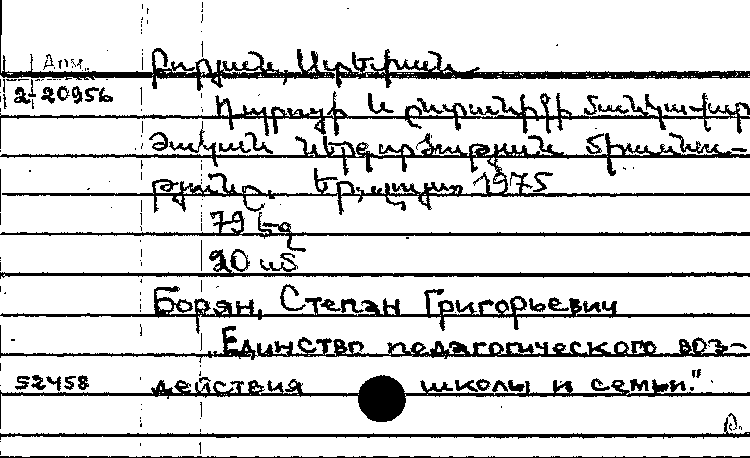 Арм.
Բորյան, Ստեփան
2-20956
Դպրոցի և ընտանիքի մանկավար
ժական ներգործության միասնու-
թյունը. Եր., Լույս, 1975
79 էջ
20 սմ
Борян, Степан Григорьевич
„Единство педагогического воз-
52458 действия школы и семьи."